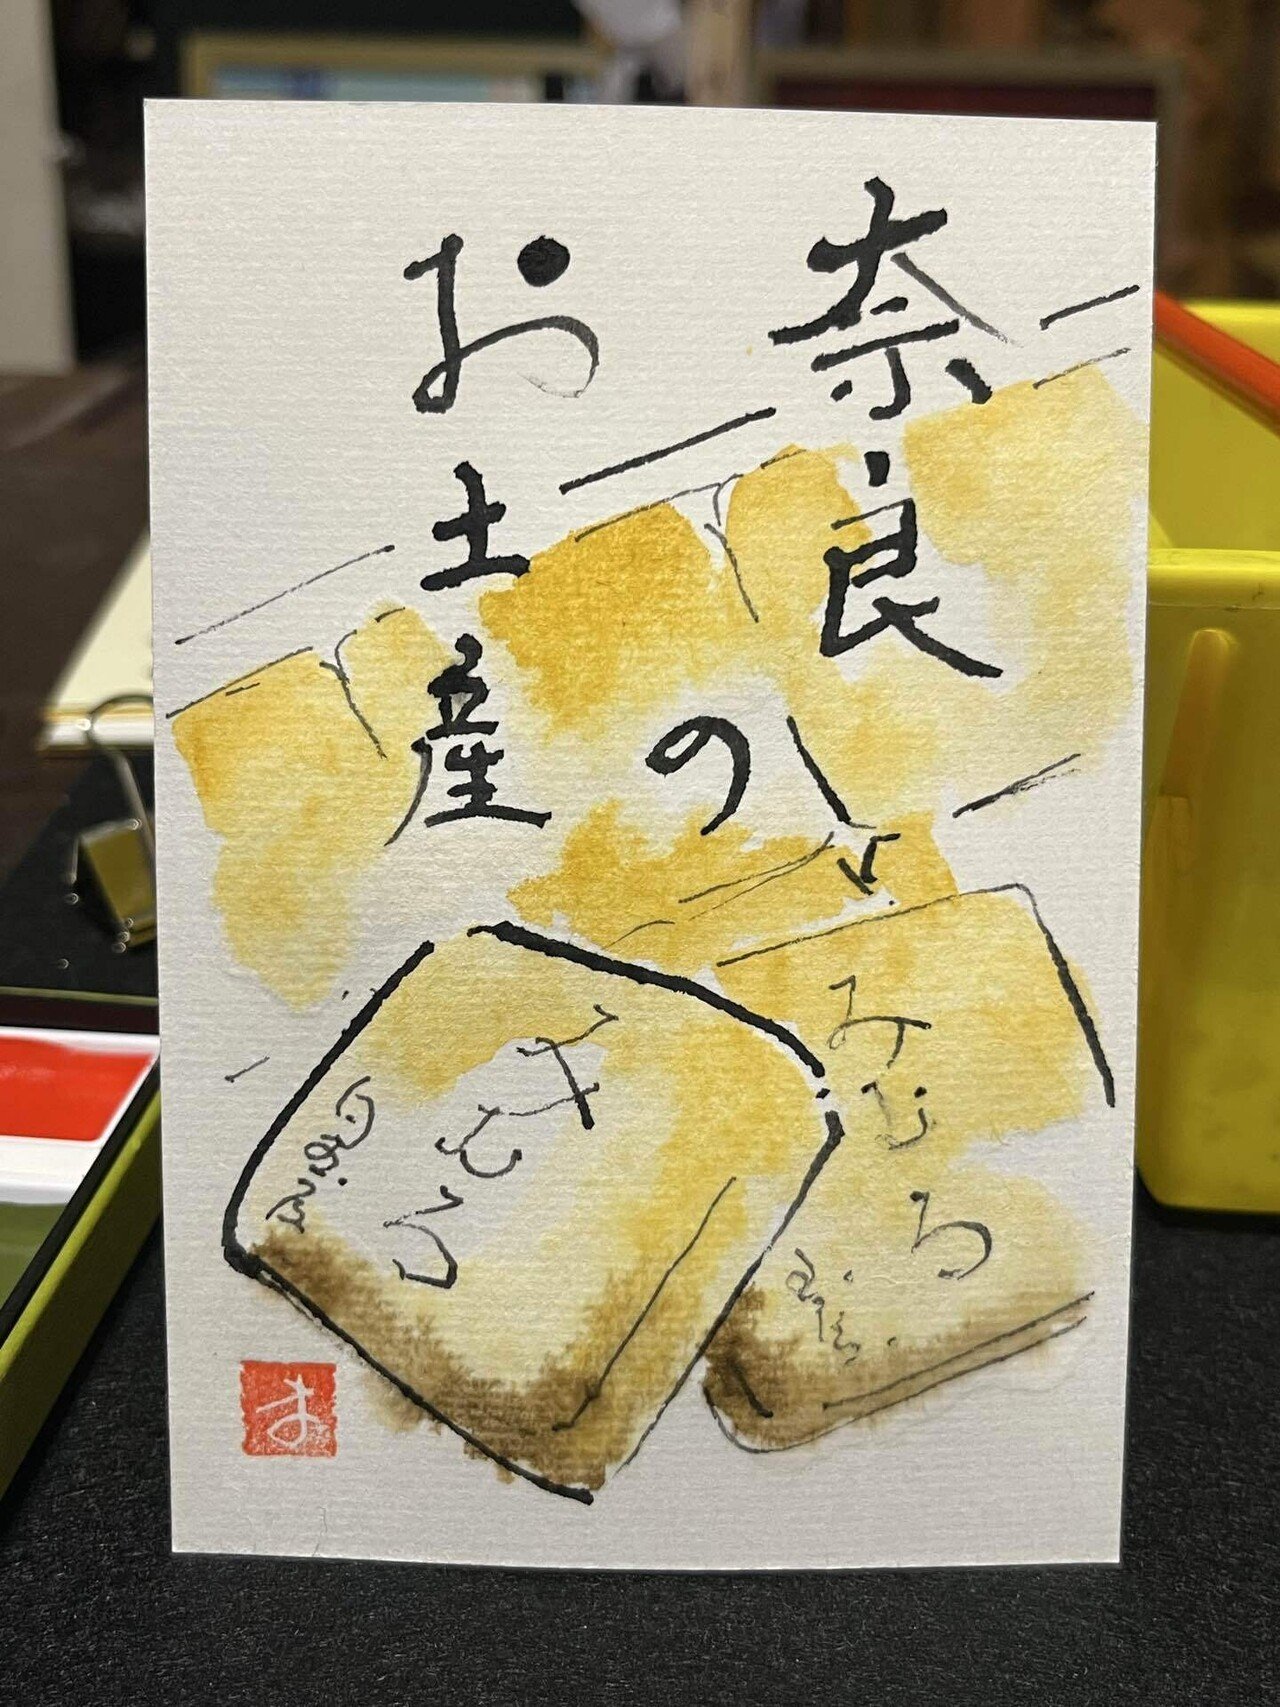 奈良
の
お土産
みむろ
みむろ
ま